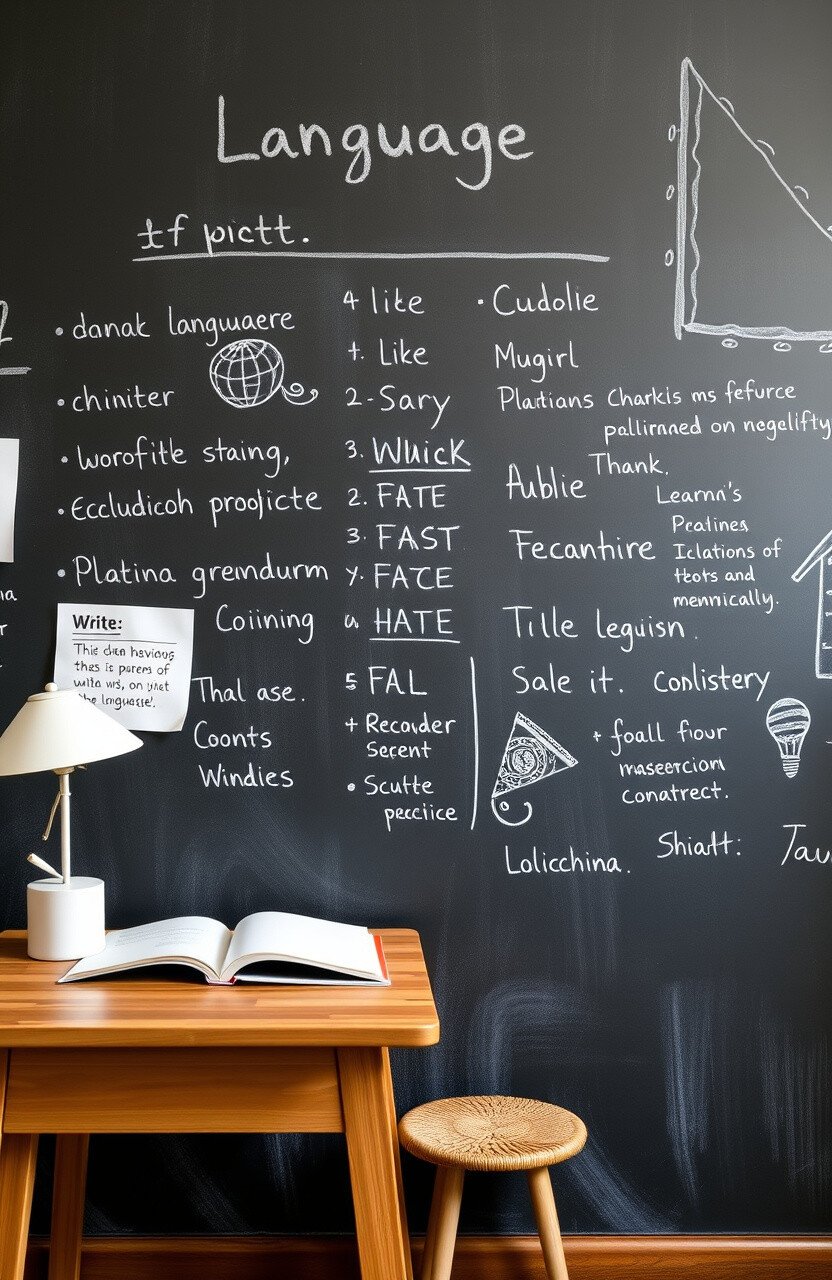 Language
tf pictt.
• danak languaere
• chiniter
• worofitle staing,
• Eccludicoh projicte
• Platina gremdurm
Coiining
Write:
Thal ase.
Coonts
Windies
4 like
+. Like
2- Sary
3. Whick
2. FATE
3. FAST
y. FACE
a HATE
5 FAL
+ Recovder
Secent
• Scutte
peccice
• Cudolie
Mugirl
Plartians
Charkis ms fefurce
pallirnned on negelifty
Thank.
Aublie
Learnn's
Peatines
Iclations of
ttots and
mennrically.
Fecanthire
Tille legiusn.
Sale it. Conlistery
+ foall fiour
maseercion
conatrect.
Lolicchina.
Shiatt:
Tau